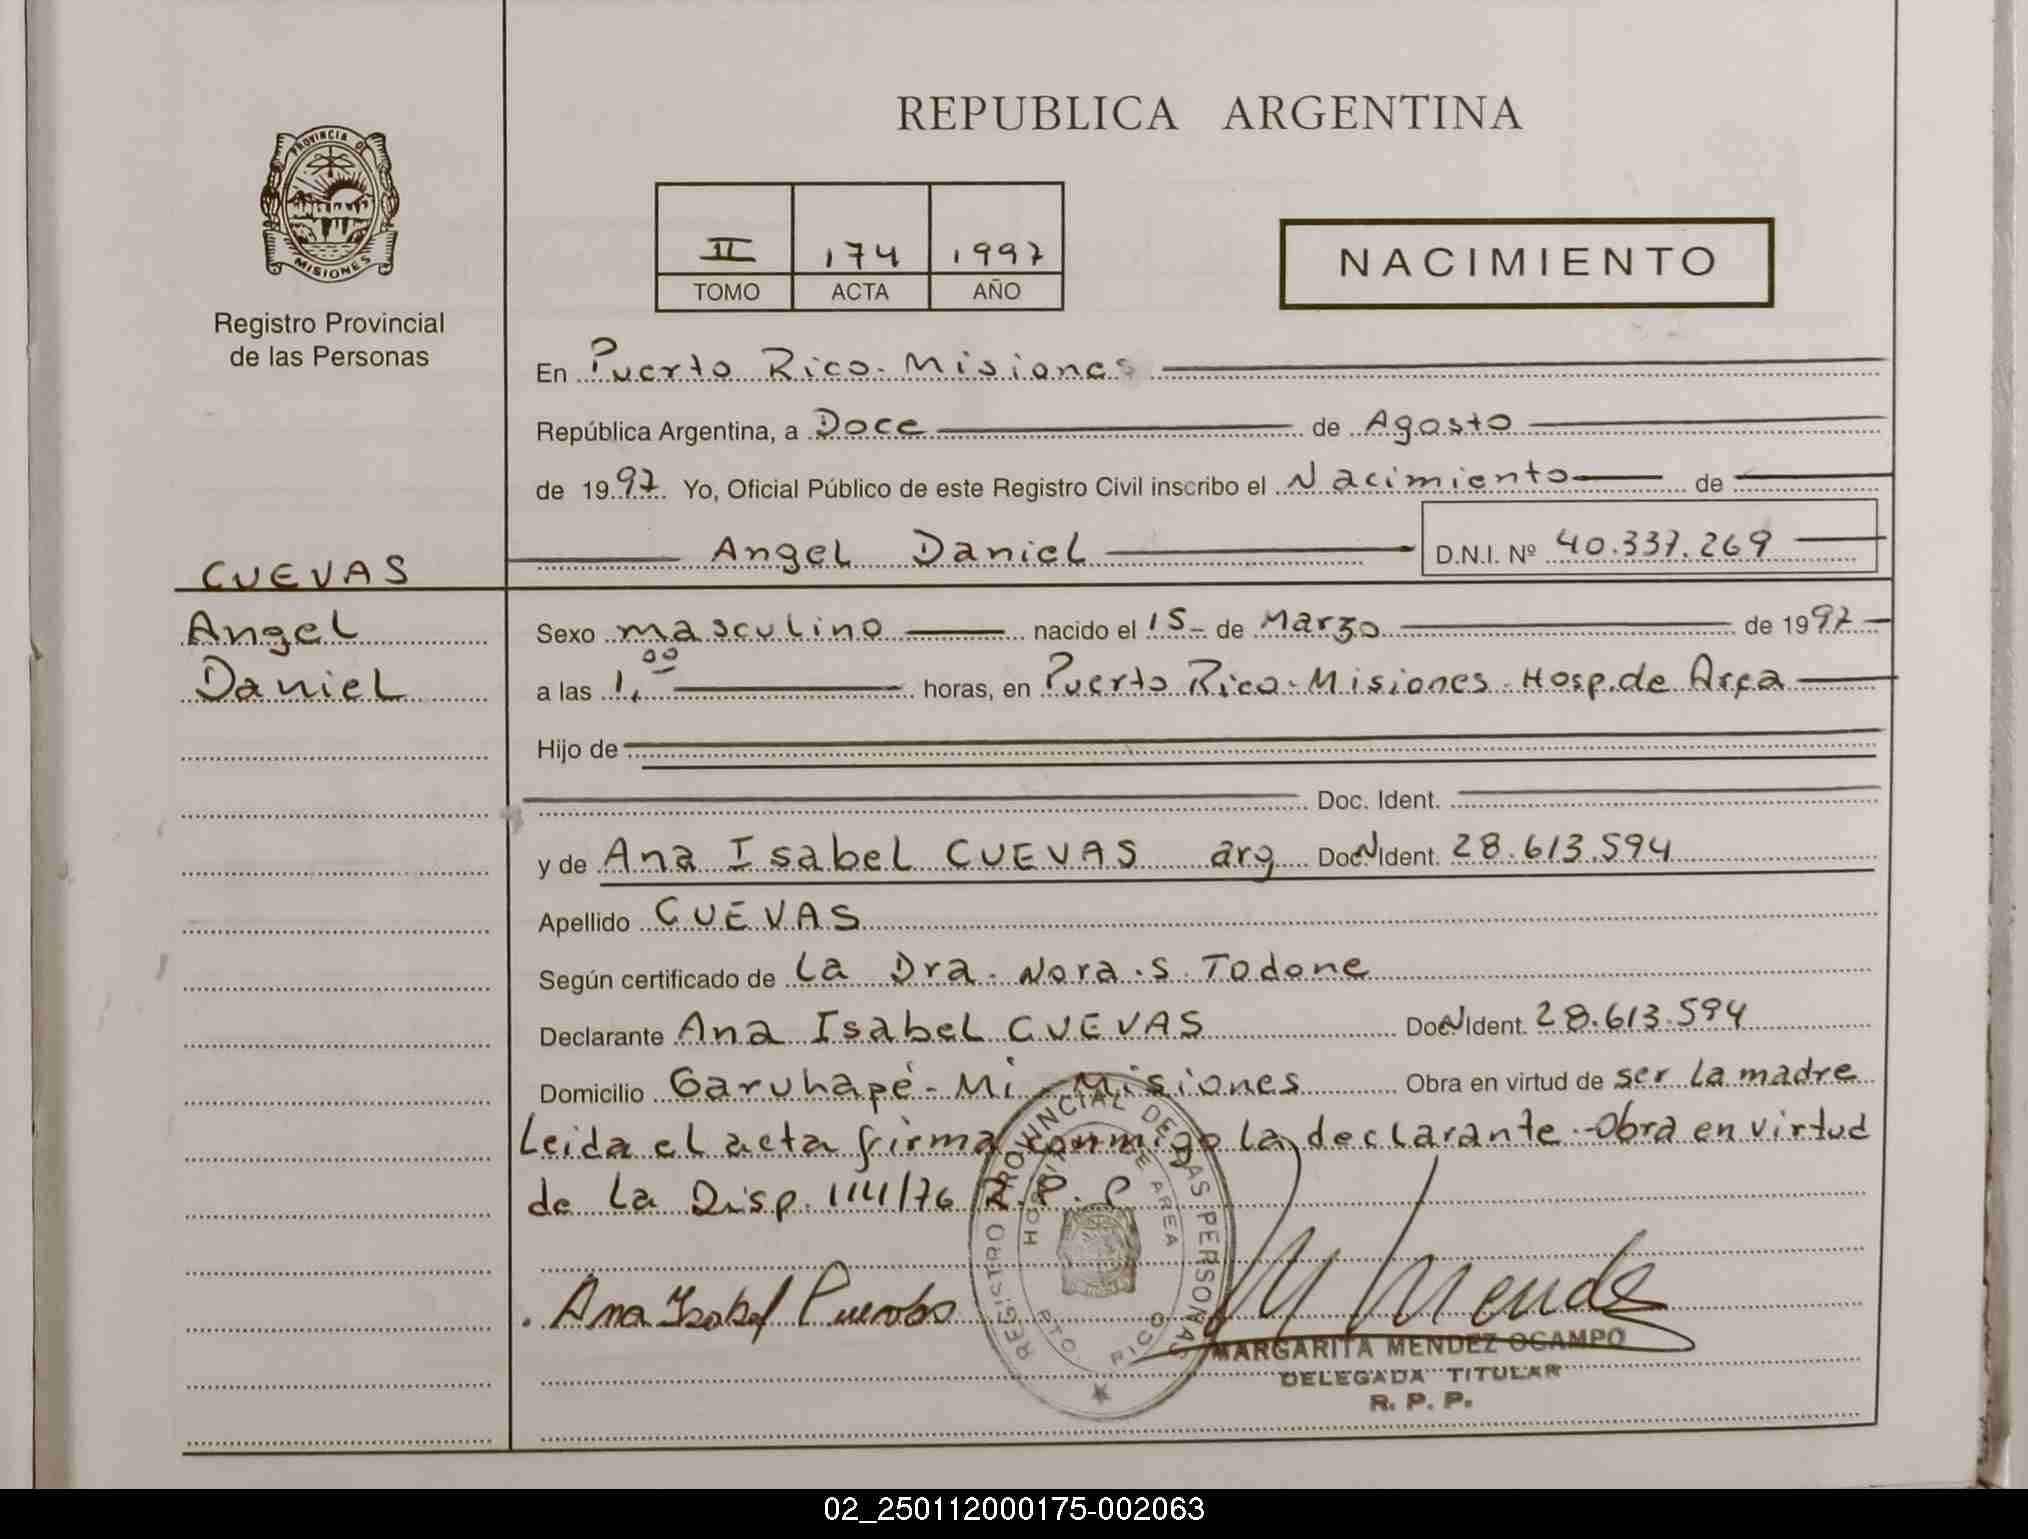 REPUBLICA ARGENTINA
PROVINCIA DE
MISIONES
Registro Provincial
de las Personas
II 174 1997
TOMO ACTA AÑO
NACIMIENTO
En Puerto Rico - Misiones
República Argentina, a Doce de Agosto
de 1997 Yo, Oficial Público de este Registro Civil inscribo el Nacimiento de
Angel Daniel D.N.I. Nº 40.337.269
CUEVAS
Angel
Daniel
Sexo masculino nacido el 15- de Marzo de 1997
a las 1,00 horas, en Puerto Rico - Misiones - Hosp. de Area
Hijo de
Doc. Ident.
y de Ana Isabel CUEVAS arg Doc. N Ident. 28.613.594
Apellido CUEVAS
Según certificado de La Dra. Nora S. Todone
Declarante Ana Isabel CUEVAS Doc. N Ident. 28.613.594
Domicilio Garuhapé - Mi - Misiones Obra en virtud de ser la madre
Leida el acta firma conmigo la declarante - Obra en virtud
de La Disp. 1141/76 R.P.P
REGISTRO PROVINCIAL DE LAS PERSONAS
HOSPITAL DE AREA
PTO. RICO
Ana Isabel Cuevas
M Mendez
MARGARITA MENDEZ OCAMPO
DELEGADA TITULAR
R. P. P.
02_250112000175-002063